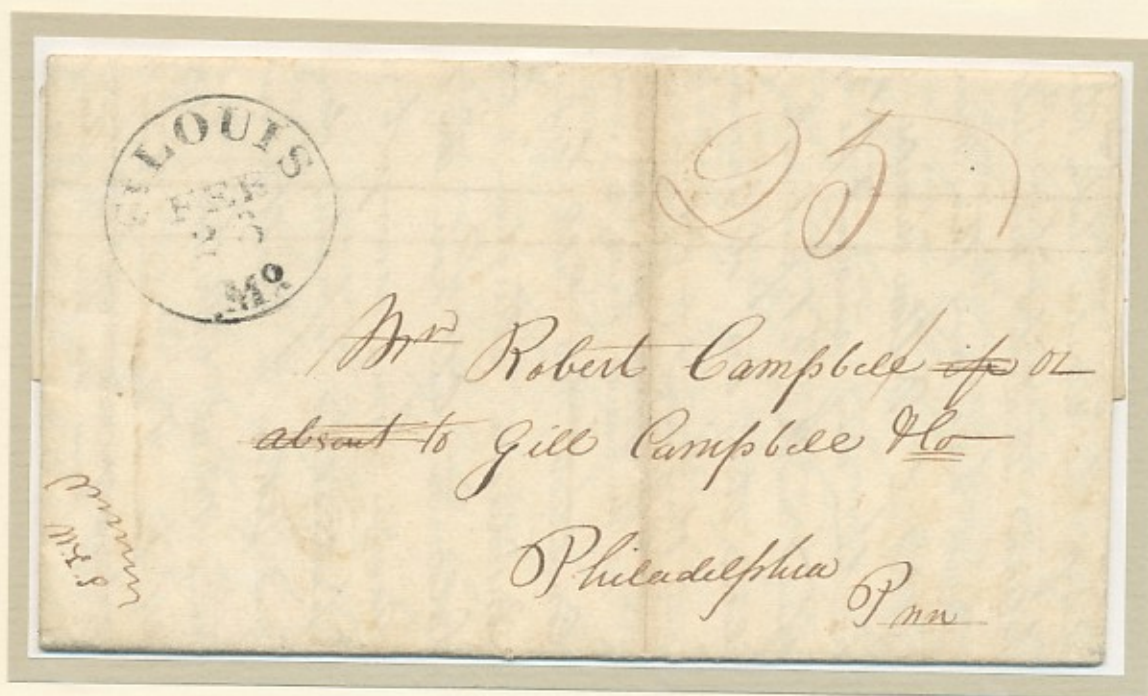 ST LOUIS
FEB
23
Mo
25
Mr Robert Campbell if or
absent to Gill Campbell & Co
Philadelphia
Pnn